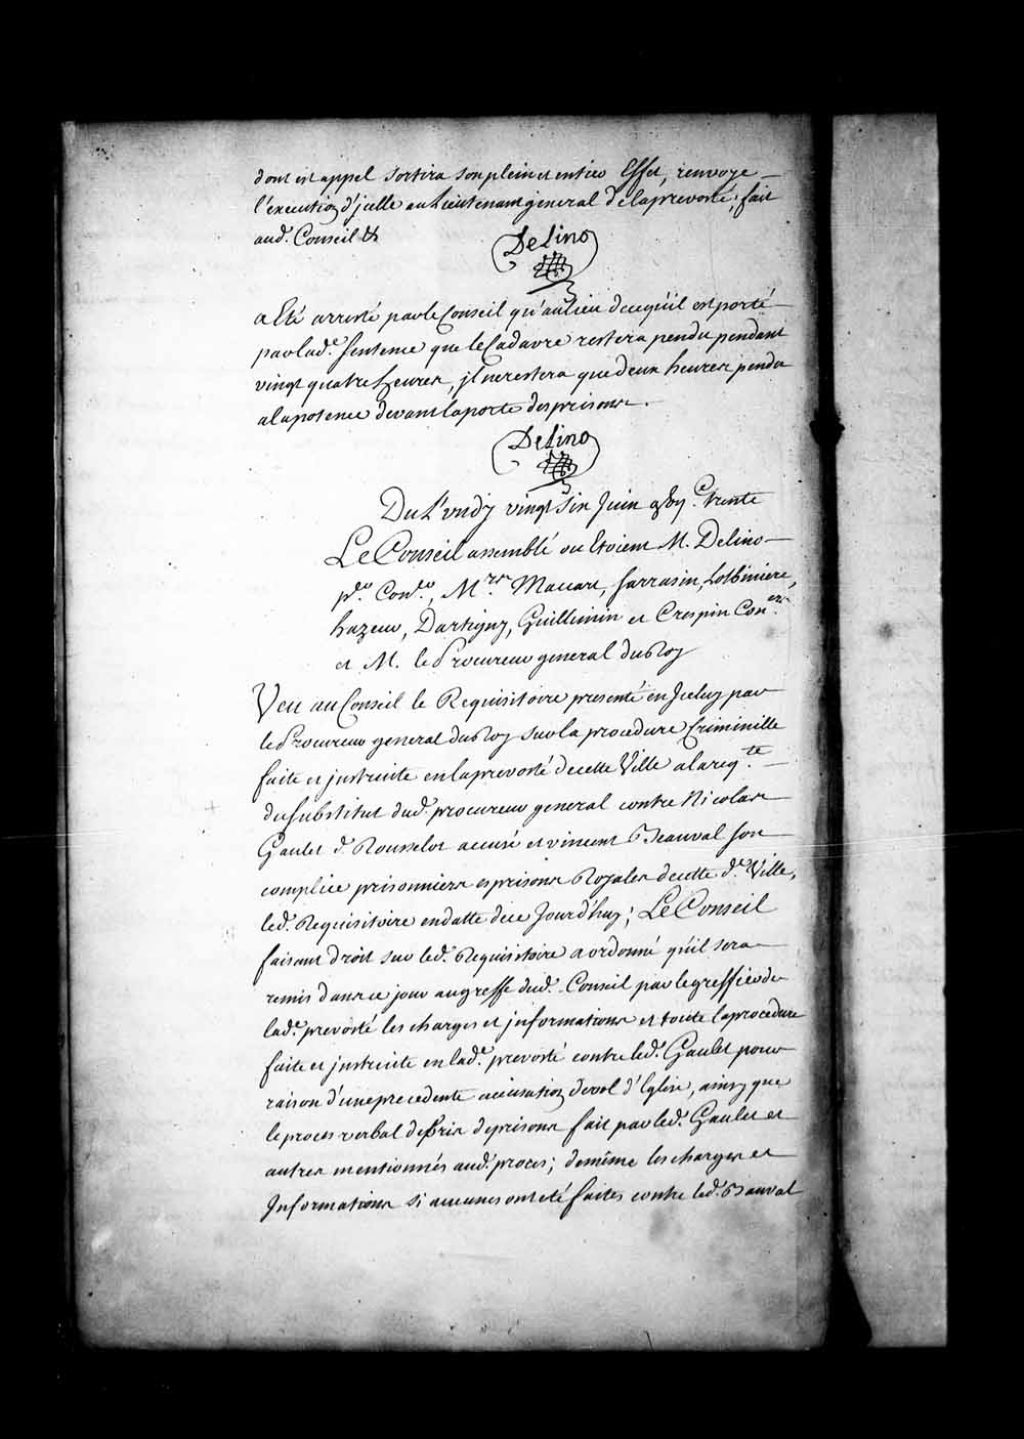 dont est appel sortira son plein et entier Effet, renvoye
l'execution d'jcelle au Lieutenant general de la prevosté; fait
aud. Conseil &
Delino
a Eté arresté par le Conseil qu'au lieu de ce qu'il est porté
par lad.e Sentence que le Cadavre restera pendu pendant
vingt quatre heures, jl ne restera que deux heures pendu
a la potence devant la porte des prisons.
Delino
Du Lundy vingt Six Juin trente
Le Conseil assemblé ou Etoient M. Delino
p.er Con.er, M.rs Macart, Sarrasin, Lotbiniere,
hazeur, Dartigny, Guillimin et Crespin Con.ers
et M. le Procureur general du Roy
Veu au Conseil le Requisitoire presenté en Jceluy par
le Procureur general du Roy sur la procedure Criminelle
faite et jnstruite en la prevosté de cette Ville a la req.te
du Substitut dud. procureur general contre Nicolas
Gaulet d. Rousselot accusé et vincent Beauval son
complice prisonniers es prisons Royales de cette d.e Ville,
led. Requisitoire en datte de ce Jourd'huy; Le Conseil
faisant droit sur led. Requisitoire a ordonné qu'il sera
remis dans ce jour au greffe dud. Conseil par le greffier de
lad.e prevosté les charges et jnformations et toute la procedure
faite et jnstruite en lad.e prevosté contre led. Gaulet pour
raison d'une precedente accusation de vol d'Eglise, ainsy que
le proces verbal de bris de prisons fait par led. Gaulet et
autres mentionnés aud. proces; de même les charges et
Jnformations si aucunes ont été faites contre led. Bauval